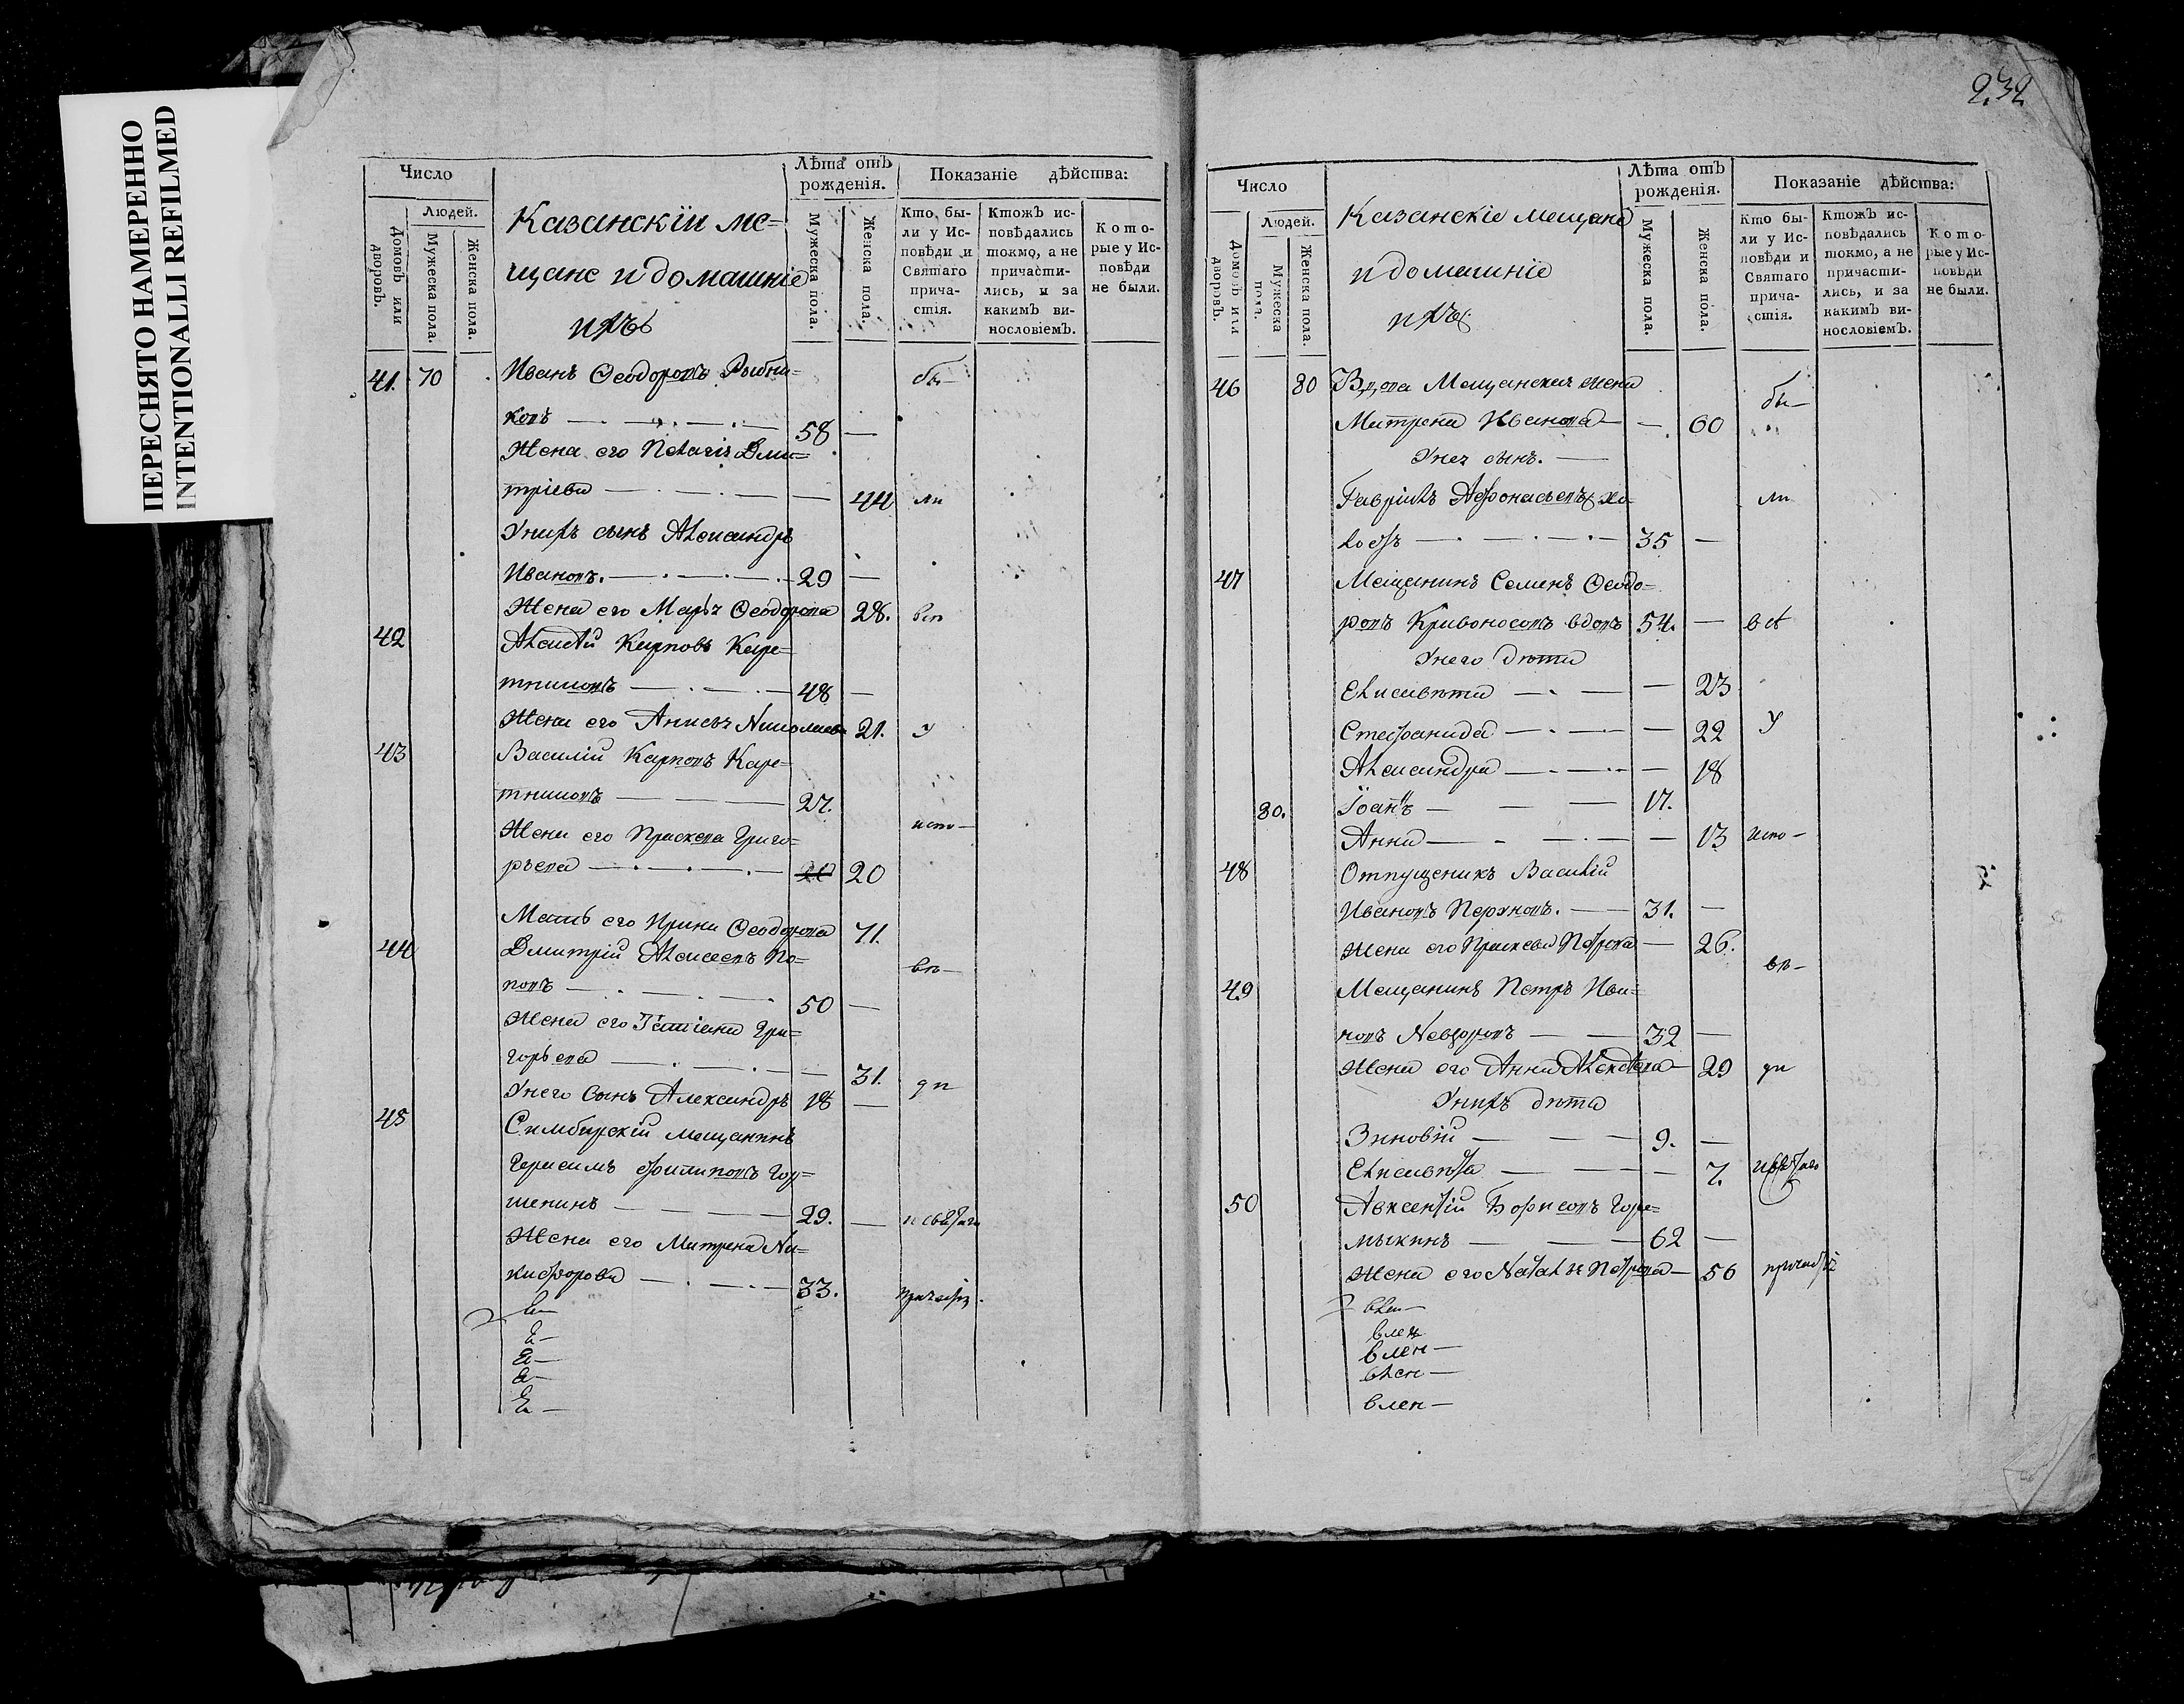 ПЕРЕСНЯТО НАМЕРЕННО
INTENTIONALLI REFILMED
Число
Людей.
Домовъ или дворовъ.
Мужеска пола.
Женска пола.
Казанскїи ме=
щане и домашніе
ихъ
Лѣта отъ рожденія.
Мужеска пола.
Женска пола.
Показаніе дѣйства:
Кто бы-
ли у Ис-
повѣди и
Святаго
прича-
стія.
Ктожъ ис-
повѣдались
токмо, а не
причасти-
лись, и за
какимъ ви-
нословіемъ.
Кото-
рые у Ис-
повѣди
не были.
41. 70 Иванъ Ѳеодоровъ Рыбни= бы—
ковъ — 58 —
Жена его Пелагія Дми=
тріева — — 44 ли
У нихъ сынъ Александръ
Ивановъ. — 29 —
Жена его Марья Ѳеодорова 28. всѣ
42 Алексѣй Карповъ Каре=
тниковъ — 48 —
Жена его Анисья Николаева 21. у
43 Василій Карповъ Каре=
тниковъ — 27.
Жена его Прасковья Григо= испо—
рьева — 20 20
Мать его Ирина Ѳеодорова 71.
44 Дмитрій Алексеевъ По= вѣ—
повъ — 50 —
Жена его Татіана Гри=
горьева — — 31. ди
У него сынъ Александръ 18 —
45 Симбирскій мещанинъ
Герасимъ Филиповъ Гор=
шенинъ — 29. — и святаго
Жена его Матрена Ни=
кифорова — 33. причастія.
232
Число
Людей.
Домовъ или дворовъ.
Мужеска пола.
Женска пола.
Казанскіе мещане
и домашніе
ихъ
Лѣта отъ рожденія.
Мужеска пола.
Женска пола.
Показаніе дѣйства:
Кто бы-
ли у Ис-
повѣди и
Святаго
прича-
стія.
Ктожъ ис-
повѣдались
токмо, а не
причасти-
лись, и за
какимъ ви-
нословіемъ.
Кото-
рые у Ис-
повѣди
не были.
46 80 Вдова Мещанская жена бы—
Матрена Иванова — — 60
У нея сынъ. —
Гавріилъ Афонасьевъ Хо= ли
лостъ — 35 —
47 Мещанинъ Семенъ Ѳеодо=
ровъ Кривоносовъ вдовъ 54. — всѣ
У него дѣти
Елисавета — — 23
Стефанида — — 22 у
Александра — — 18
80. Іоаннъ — 17.
Анна — — 13 испо—
48 Отпущеникъ Василій
Ивановъ Перуновъ. — 31. —
Жена его Прасковья Петрова — 26. вѣ—
49 Мещанинъ Петръ Ива=
новъ Невзоровъ — 32 —
Жена его Анна Алексѣева — 29 ди
У нихъ дѣти
Зиновій — 9. —
Елисавета — — 7. и святаго
50 Авксентій Борисовъ Горе=
мыкинъ — 62 —
Жена его Наталья Петрова — 56 причастія
влен—
влен
влен—
влен—
влен—